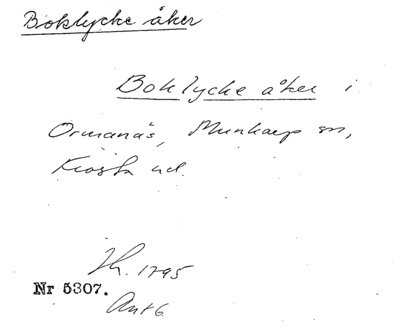 Boklycke åker
Boklycke åker i
Ormanäs, Munkarp sn,
Frosta hd.
Jh. 1795
Nr 5307.
Ant 6